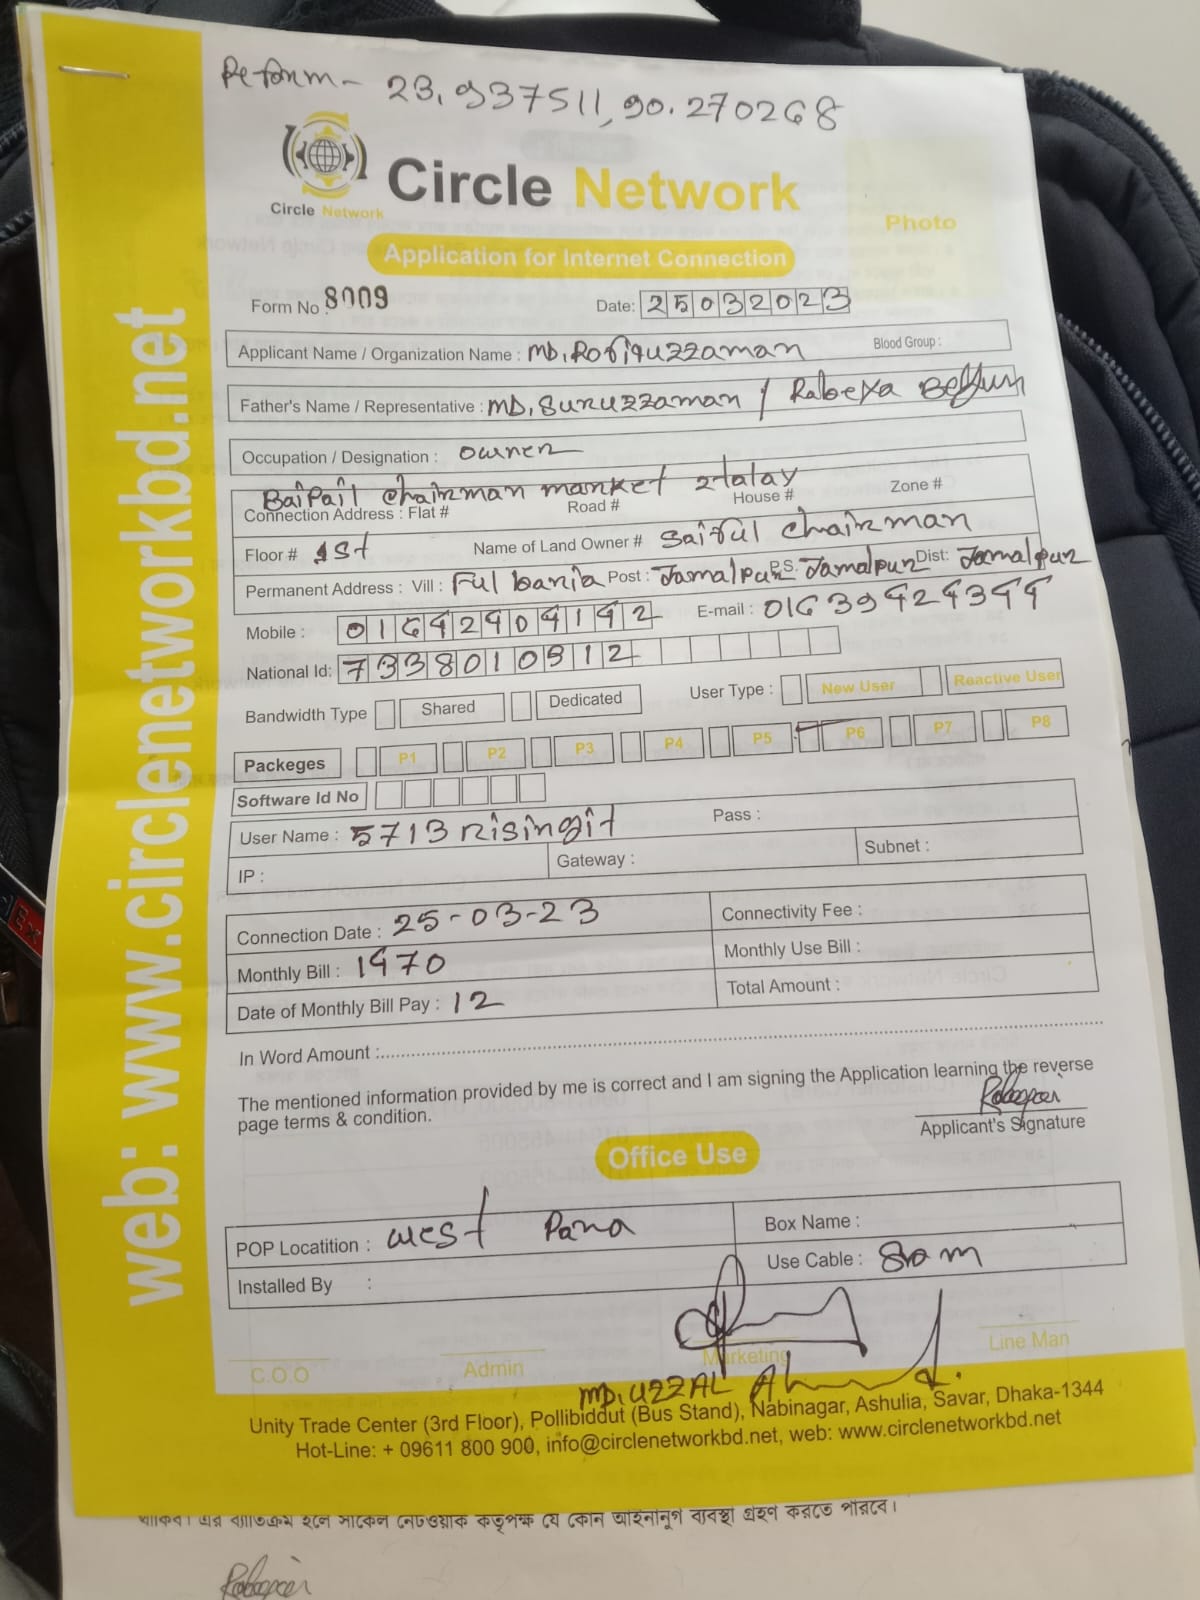 Reform - 23.937511, 90.270268
Circle Network
Circle Network
Photo
Application for Internet Connection
Form No : 8009 Date: 25032023
Applicant Name / Organization Name : MD. Rofiquzzaman Blood Group :
Father's Name / Representative : MD. Suruzzaman / Rabeya Begum
Occupation / Designation : owner
Baipail chairman market 2talay
Connection Address : Flat # Road # House # Zone #
Floor # 1st Name of Land Owner # Saiful chairman
Permanent Address : Vill : Ful baria Post : Jamalpur P.S. Jamalpur Dist: Jamalpur
Mobile : 01642404142 E-mail : 01639424344
National Id: 7338010912
Bandwidth Type Shared Dedicated User Type : New User Reactive User
Packeges P1 P2 P3 P4 P5 P6 P7 P8
Software Id No
User Name : 5713 risingit Pass :
IP : Gateway : Subnet :
Connection Date : 25-03-23 Connectivity Fee :
Monthly Bill : 1470 Monthly Use Bill :
Date of Monthly Bill Pay : 12 Total Amount :
In Word Amount :
The mentioned information provided by me is correct and I am signing the Application learning the reverse
page terms & condition.
Applicant's Signature
Office Use
POP Locatition : west Para Box Name :
Installed By : Use Cable : 80 m
C.O.O Admin Marketing Line Man
MD. UZZAL
Unity Trade Center (3rd Floor), Pollibiddut (Bus Stand), Nabinagar, Ashulia, Savar, Dhaka-1344
Hot-Line: + 09611 800 900, info@circlenetworkbd.net, web: www.circlenetworkbd.net
web: www.circlenetworkbd.net
থাকিব। এর ব্যতিক্রম হলে সার্কেল নেটওয়ার্ক কতৃপক্ষ যে কোন আইনানুগ ব্যবস্থা গ্রহণ করতে পারবে।